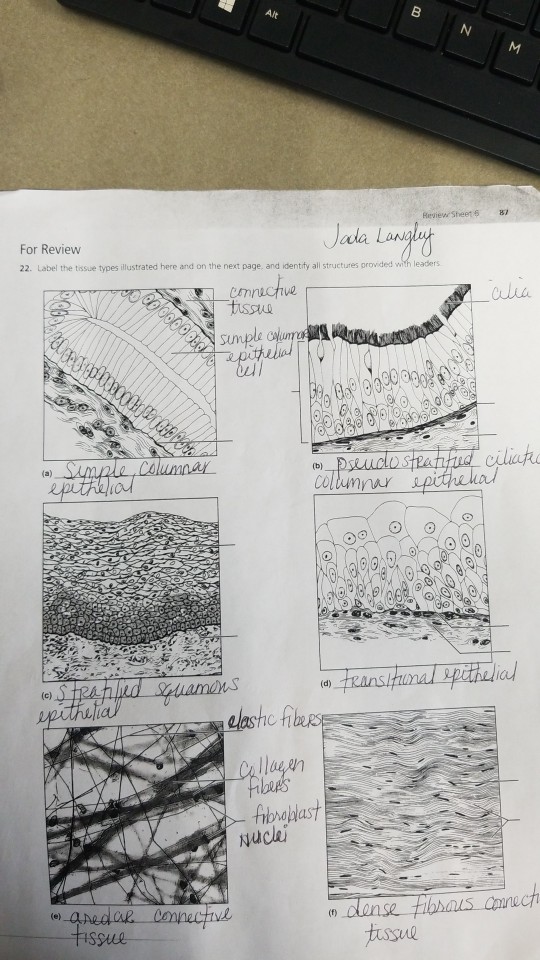 Alt
B
N
M
Review Sheet 6 87
Jada Langley
For Review
22. Label the tissue types illustrated here and on the next page, and identify all structures provided with leaders.
connective
tissue
simple columnar
epithelial
cell
cilia
(a) Simple columnar
epithelial
(b) pseudostratified ciliated
columnar epithelial
(c) stratified squamous
epithelial
(d) transitional epithelial
elastic fibers
Collagen
fibers
fibroblast
nuclei
(e) areolar connective
tissue
(f) dense fibrous connecti
tissue